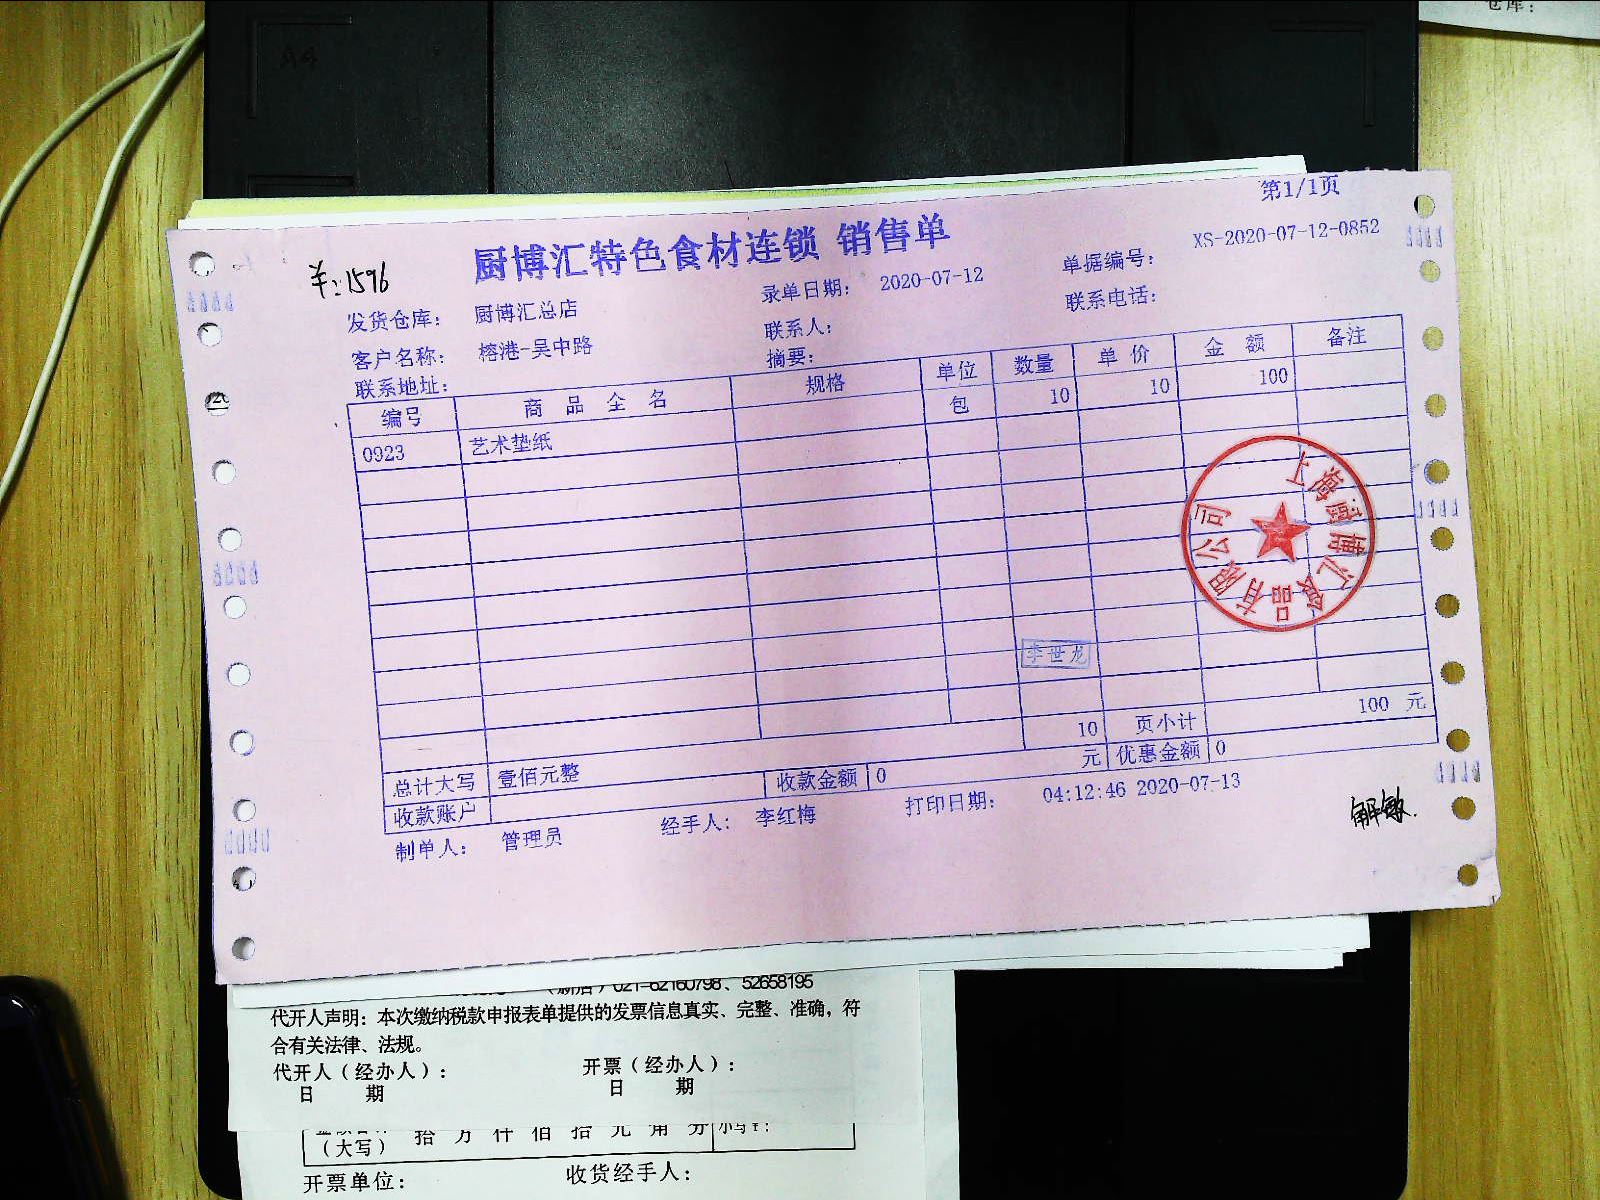 仓库：
第1/1页
厨博汇特色食材连锁 销售单
¥:1596
发货仓库： 厨博汇总店 录单日期： 2020-07-12 单据编号： XS-2020-07-12-0852
客户名称： 榕港-吴中路 联系人： 联系电话：
联系地址： 摘要：
编号 商品全名 规格 单位 数量 单价 金额 备注
0923 艺术垫纸 包 10 10 100
上海厨博汇食品有限公司
李世龙
10 页小计 100 元
总计大写 壹佰元整 收款金额 0 元 优惠金额 0
收款账户
制单人： 管理员 经手人： 李红梅 打印日期： 04:12:46 2020-07-13
解敏.
021-62160798、52658195
代开人声明：本次缴纳税款申报表单提供的发票信息真实、完整、准确，符
合有关法律、法规。
代开人（经办人）： 开票（经办人）：
日 期 日 期
（大写） 拾 万 仟 佰 拾 元 角 分 小写¥：
开票单位： 收货经手人：